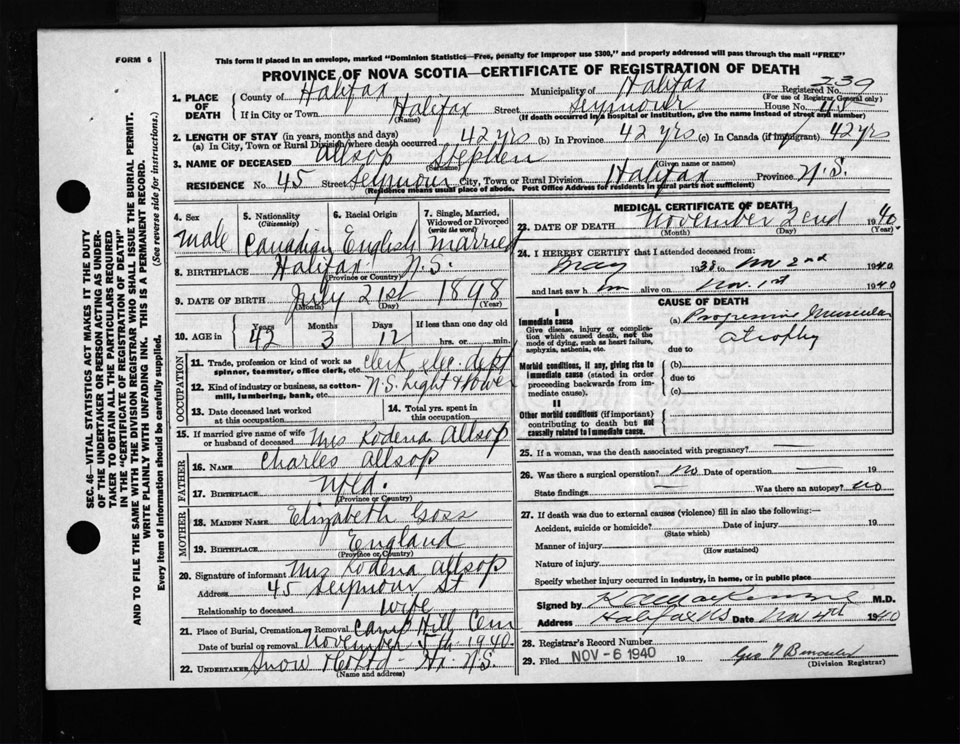 FORM 6
This form if placed in an envelope, marked "Dominion Statistics—Free, penalty for improper use $300," and properly addressed will pass through the mail "FREE"
PROVINCE OF NOVA SCOTIA—CERTIFICATE OF REGISTRATION OF DEATH
239
1. PLACE OF DEATH
County of Halifax Municipality of Halifax Registered No.
(For use of Registrar General only)
If in City or Town Halifax Street Seymour House No. 45
(Name) (If death occurred in a hospital or institution, give the name instead of street and number)
2. LENGTH OF STAY (in years, months and days)
(a) In City, Town or Rural Division where death occurred 42 yrs (b) In Province 42 yrs (c) In Canada (if immigrant) 42 yrs
3. NAME OF DECEASED Allsop Stephen
(Surname) (Given name or names)
RESIDENCE No. 45 Street Seymour City, Town or Rural Division Halifax Province N.S.
(Residence means usual place of abode. Post Office Address for residents in rural parts not sufficient)
4. Sex male
5. Nationality (Citizenship) Canadian
6. Racial Origin English
7. Single, Married, Widowed or Divorced (write the word) married
8. BIRTHPLACE Halifax N.S.
(Province or Country)
9. DATE OF BIRTH July 21st 1898
(Month) (Day) (Year)
10. AGE in Years 42 Months 3 Days 12 If less than one day old hrs. or min.
OCCUPATION
11. Trade, profession or kind of work as spinner, teamster, office clerk, etc. clerk elec. dept
12. Kind of industry or business, as cotton-mill, lumbering, bank, etc. N.S. Light & Power
13. Date deceased last worked at this occupation
14. Total yrs. spent in this occupation
15. If married give name of wife or husband of deceased Mrs Rodena Allsop
FATHER
16. NAME Charles Allsop
17. BIRTHPLACE Nfld.
(Province or Country)
MOTHER
18. MAIDEN NAME Elizabeth Goss
19. BIRTHPLACE England
(Province or Country)
20. Signature of informant Mrs Rodena Allsop
Address 45 Seymour St
Relationship to deceased wife
21. Place of Burial, Cremation or Removal Camp Hill Cem
Date of burial or removal November 5th 1940
22. UNDERTAKER Snow & Co Ltd - Hx. N.S.
(Name and address)
MEDICAL CERTIFICATE OF DEATH
23. DATE OF DEATH November 2nd 1940
(Month) (Day) (Year)
24. I HEREBY CERTIFY that I attended deceased from:
May 1938 to Nov 2nd 1940
and last saw him alive on Nov. 1st 1940
CAUSE OF DEATH
I
Immediate cause
Give disease, injury or complication which caused death, not the mode of dying, such as heart failure, asphyxia, asthenia, etc.
(a) Progressive Muscular
atrophy
due to
Morbid conditions, if any, giving rise to immediate cause (stated in order proceeding backwards from immediate cause).
(b)
due to
(c)
II
Other morbid conditions (if important) contributing to death but not causally related to immediate cause.
25. If a woman, was the death associated with pregnancy? —
26. Was there a surgical operation? no Date of operation — 19
State findings — Was there an autopsy? no
27. If death was due to external causes (violence) fill in also the following:—
Accident, suicide or homicide? Date of injury 19
(State which)
Manner of injury
(How sustained)
Nature of injury
Specify whether injury occurred in industry, in home, or in public place
Signed by M.D.
Address Halifax NS Date Nov 4th 1940
28. Registrar's Record Number
29. Filed NOV - 6 1940 19
(Division Registrar)
SEC. 46—VITAL STATISTICS ACT MAKES IT THE DUTY
OF THE UNDERTAKER OR PERSON ACTING AS UNDER-
TAKER TO OBTAIN ALL THE PARTICULARS REQUIRED
IN THE "CERTIFICATE OF REGISTRATION OF DEATH"
AND TO FILE THE SAME WITH THE DIVISION REGISTRAR WHO SHALL ISSUE THE BURIAL PERMIT.
WRITE PLAINLY WITH UNFADING INK. THIS IS A PERMANENT RECORD.
Every item of information should be carefully supplied. (See reverse side for instructions.)